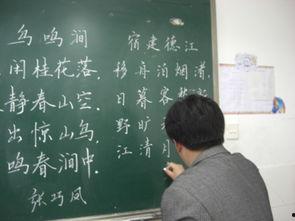 鸟鸣涧
闲桂花落,
静春山空.
出惊山鸟,
鸣春涧中.
张巧凤
宿建德江
移舟泊烟渚,
日暮客
野旷
江清月